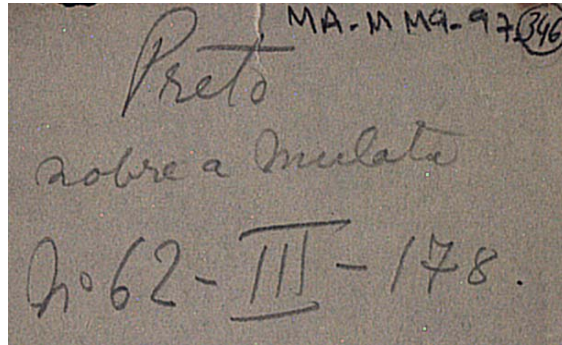 MA-MMA-97-346
Preto
sobre a mulata
nº 62-III-178.